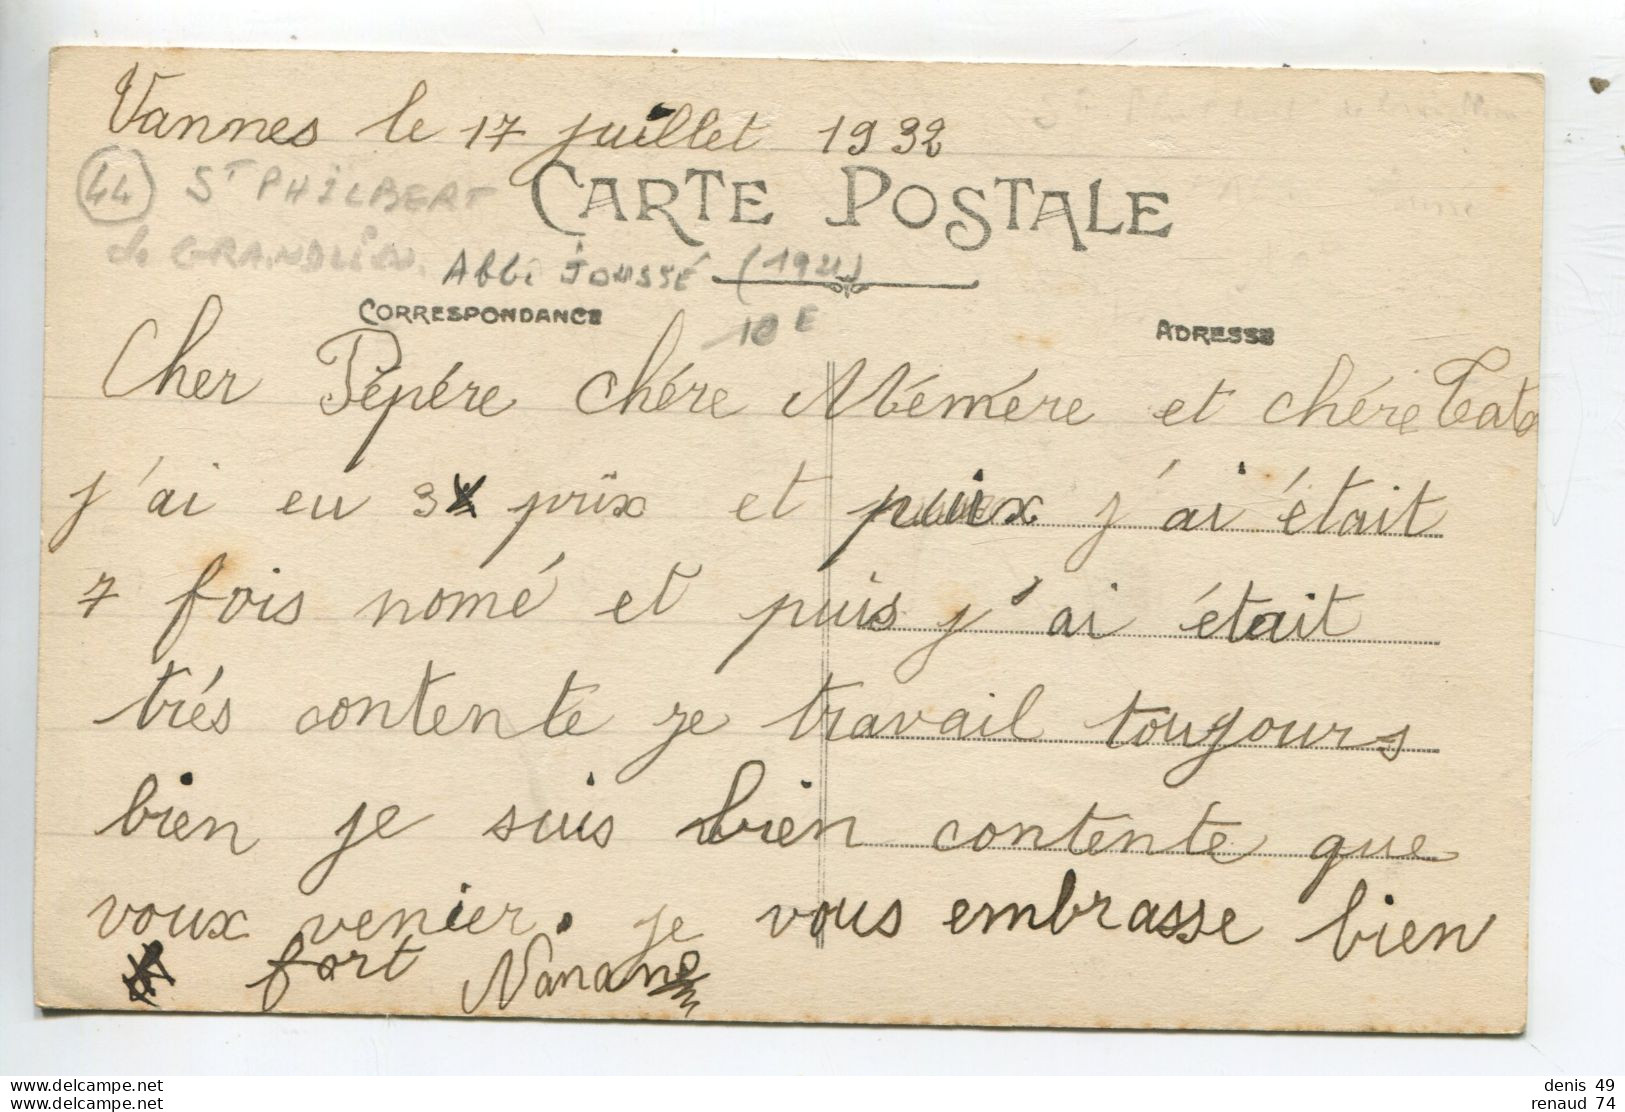 Vannes le 17 juillet 1932
44 ST PHILBERT
de GRANDLIEU
CARTE POSTALE
Abbé JOUSSÉ (1921)
10 E
CORRESPONDANCE
ADRESSE
Cher Pépére chére Mémére et chére Tata
j'ai eu 3 prix et puix j'ai était
7 fois nomé et puis j'ai était
trés contente je travail toujours
bien je suis bien contente que
voux venier. je vous embrasse bien
fort Nanan
delcampe.net
delcampe.net
denis 49
renaud 74